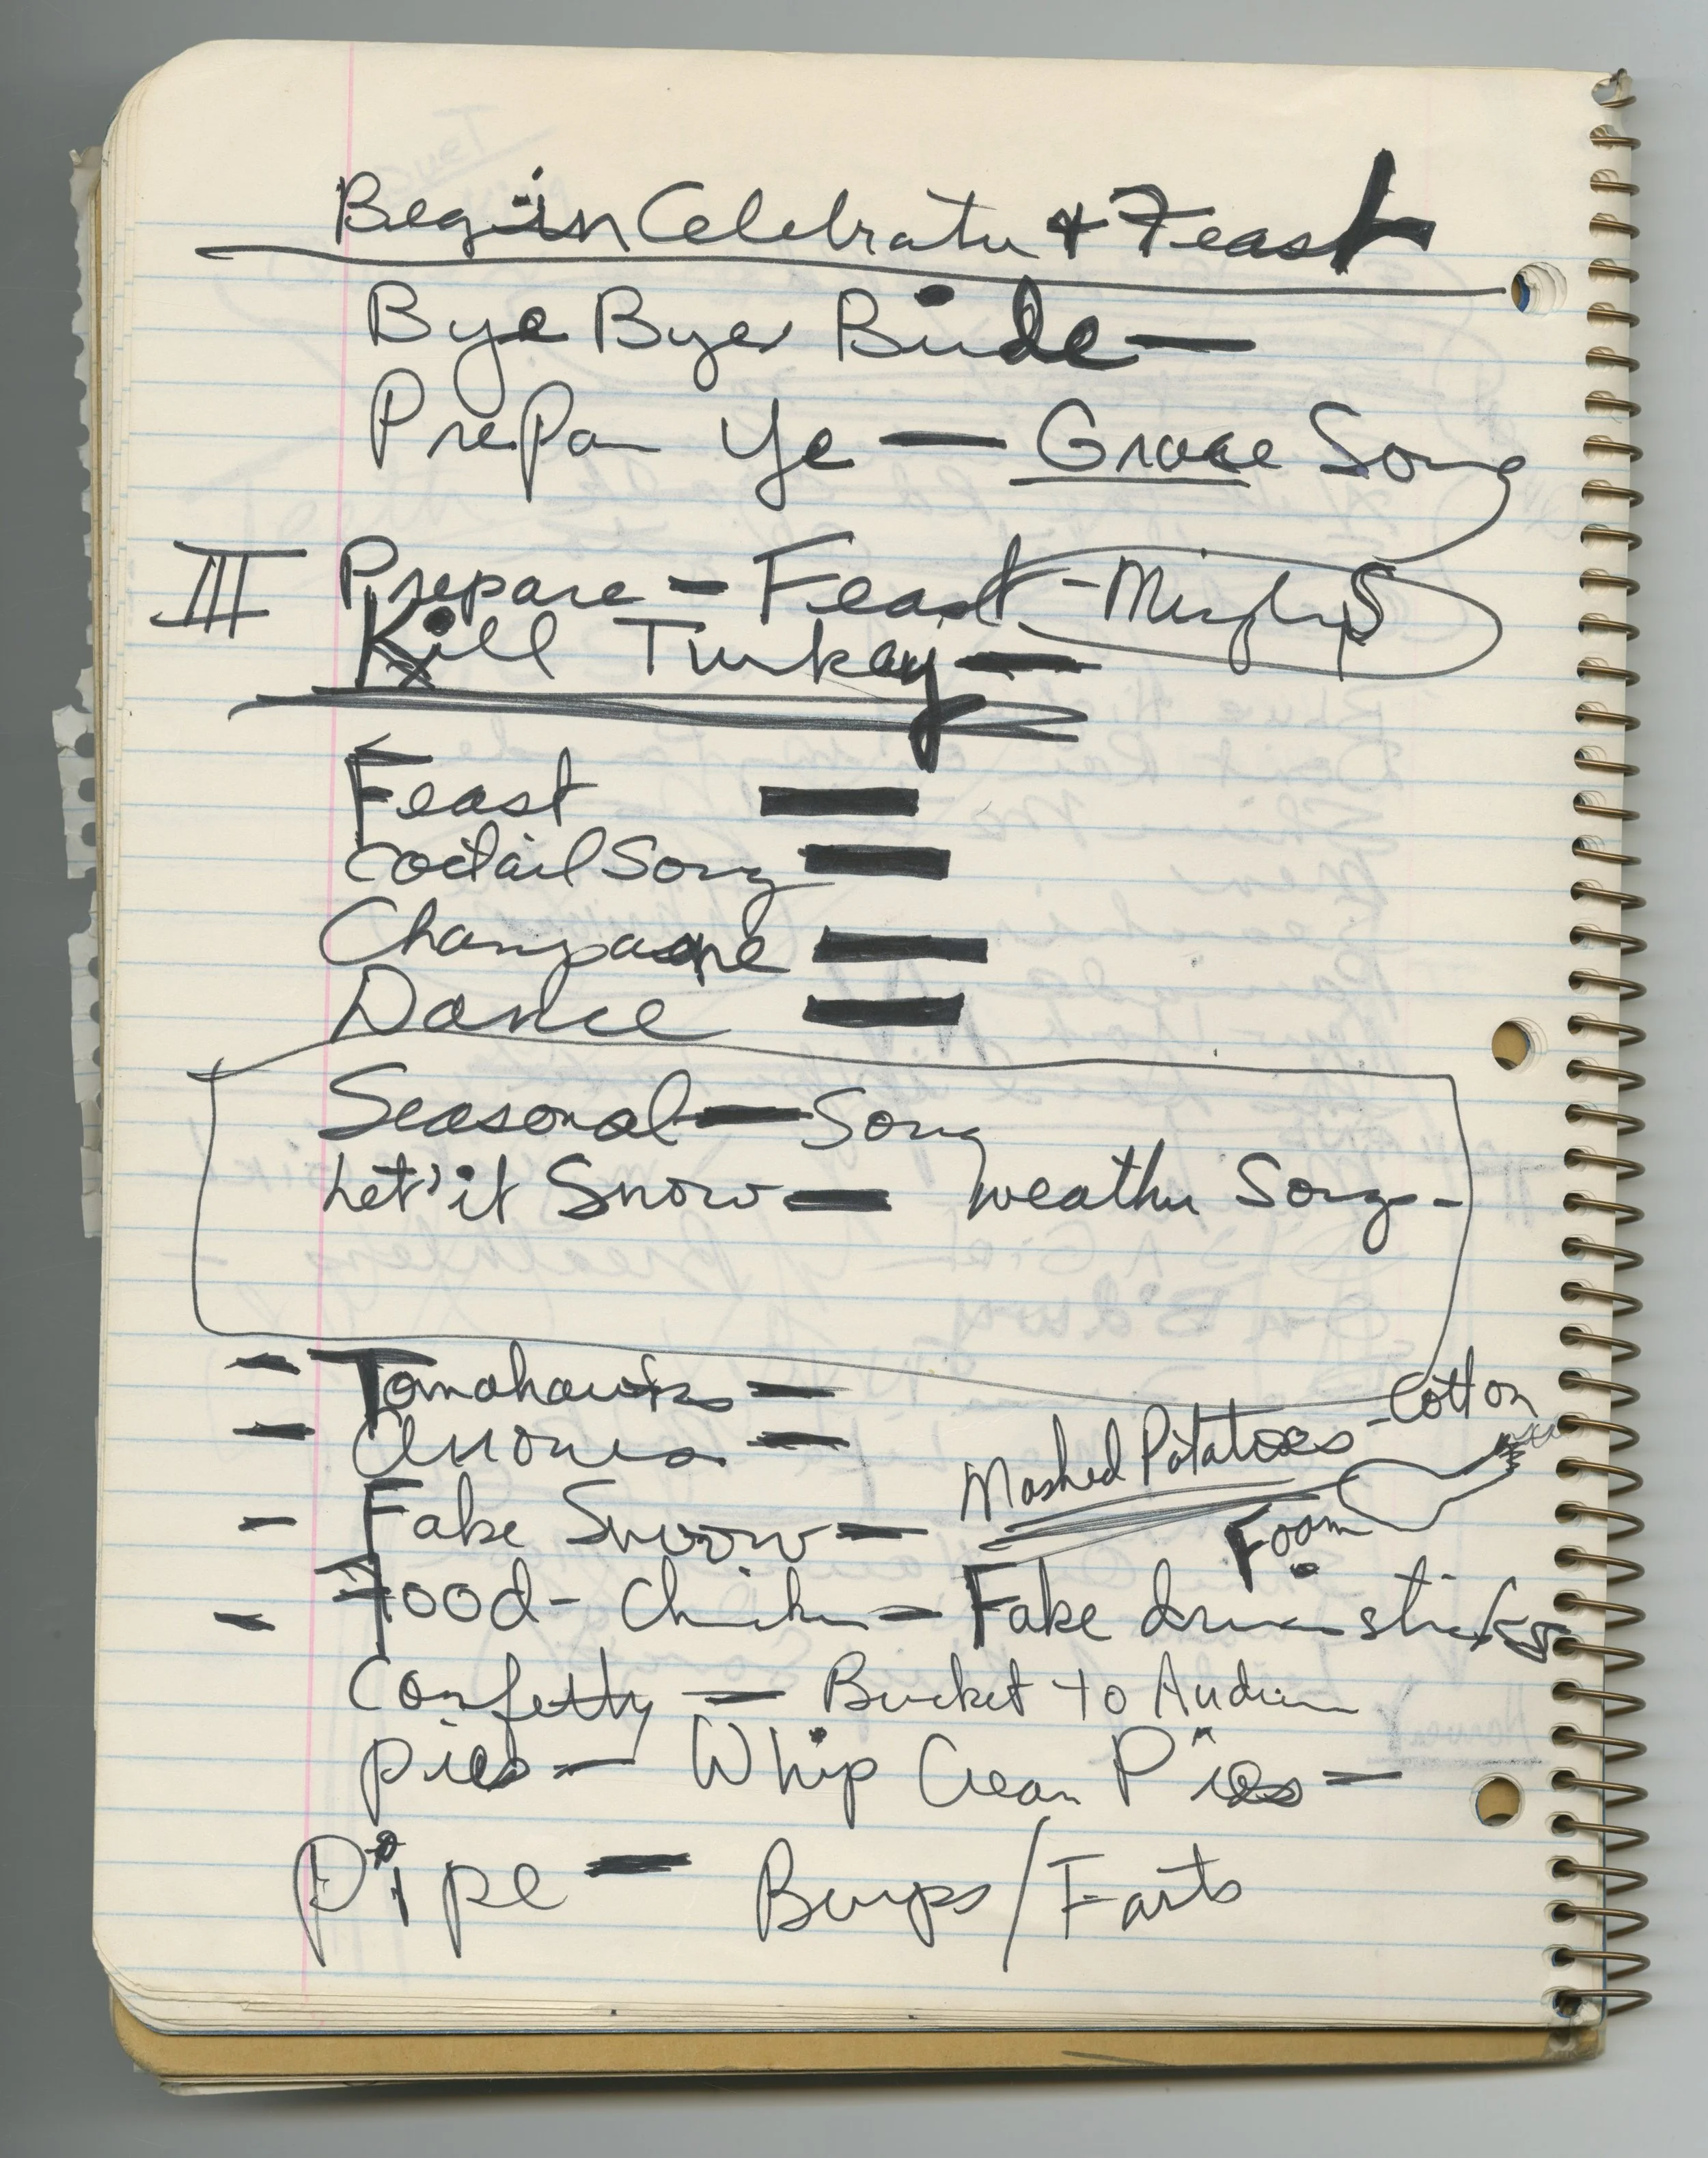 Begin Celebrate + Feast
Bye Bye Birdie —
Prepare Ye — Grace Song
III Prepare - Feast - Murphys
Kill Turkey —
Feast —
Coctail Song —
Champagne —
Dance —
Seasonal — Song
Let' it Snow — weather Song -
- Tomahawks -
- Arrows -
Mashed Potatoes - Cotton
- Fake Snow -
Foam
- Food - Chicken - Fake drumsticks
Confetty — Bucket to Audience
Pies — Whip Cream Pies —
Pipe — Burps/Farts